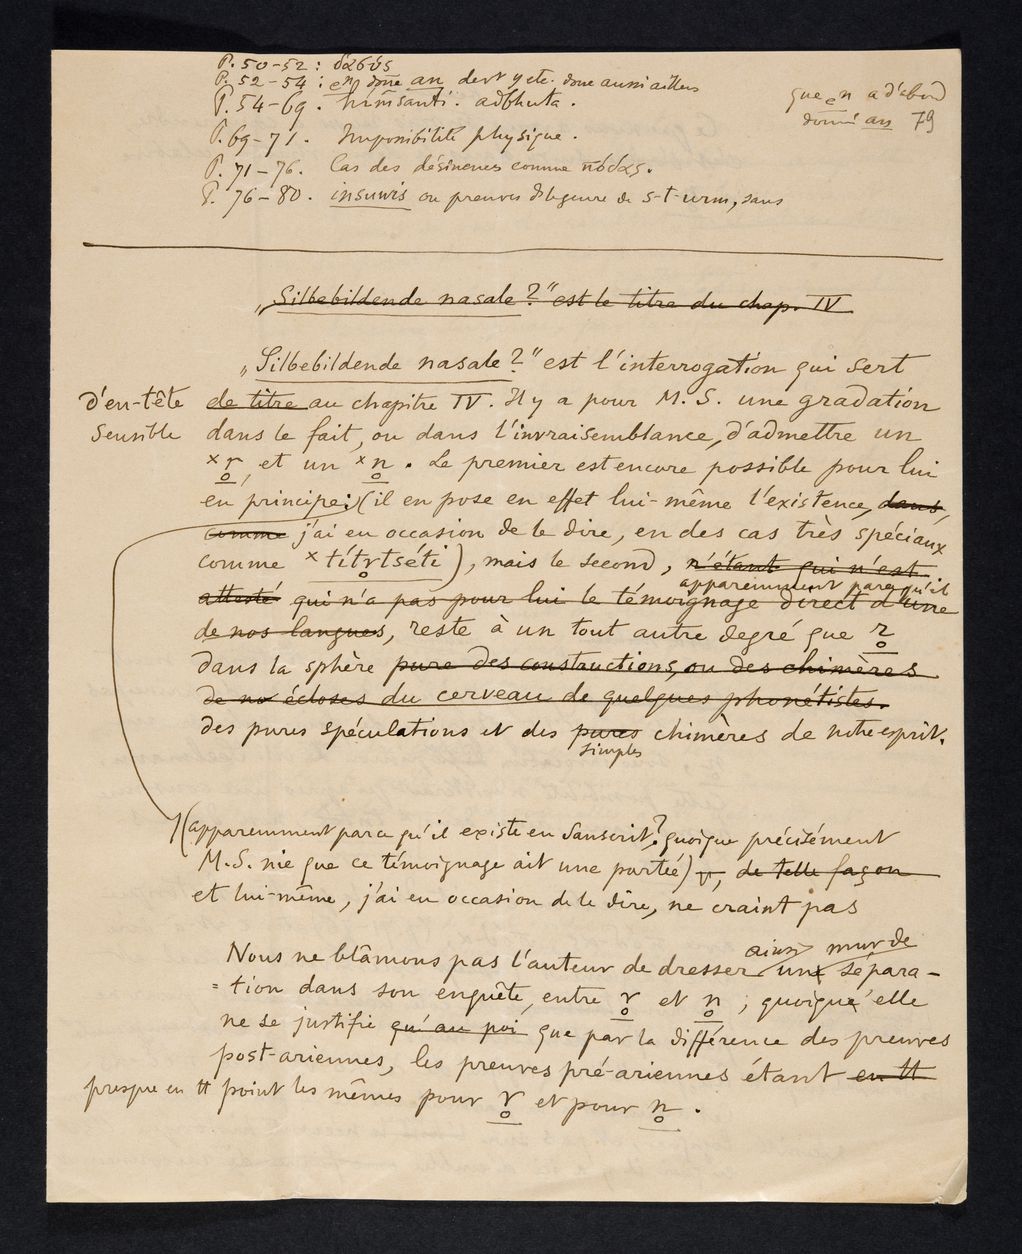 P. 50-52 : δασύς
P. 52-54 : en donne an devt y etc. donc aussi ailleurs
P. 54-69 . hiṃsanti . adbhuta .
que en a d'abord
donné an 79
P. 69-71 . Impossibilité physique .
P. 71-76 . Cas des désinences comme πόδας .
P. 76-80 . insuwis ou preuves de s-t-urm, sans
„Silbebildende nasale ?" est le titre du chap. IV
„Silbebildende nasale ?" est l'interrogation qui sert
d'en-tête de titre au chapitre IV. Il y a pour M. S. une gradation
sensible dans le fait, ou dans l'invraisemblance, d'admettre un
×r̥, et un ×n̥ . Le premier est encore possible pour lui
en principe : (il en pose en effet lui-même l'existence, dans,
comme j'ai eu occasion de le dire, en des cas très spéciaux
comme ×títr̥tséti ), mais le second, n'étant qui n'est
apparemment parce qu'il
attesté qui n'a pas pour lui le témoignage direct d'une
de nos langues, reste à un tout autre degré que r̥
dans la sphère pure des constructions, ou des chimères
de no écloses du cerveau de quelques phonétistes.
des pures spéculations et des pures chimères de notre esprit.
simples
(apparemment parce qu'il existe en Sanscrit ? quoique précisément
M. S. nie que ce témoignage ait une portée) , de telle façon
et lui-même, j'ai eu occasion de le dire, ne craint pas
ainsi mur de
Nous ne blâmons pas l'auteur de dresser une sépara-
=tion dans son enquête, entre r̥ et n̥ ; quoique elle
ne se justifie qu'au poi que par la différence des preuves
post-ariennes, les preuves pré-ariennes étant en tt
presque en tt point les mêmes pour r̥ et pour n̥ .